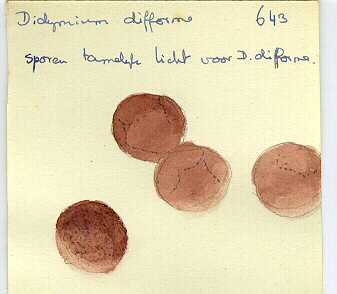 Didymium difforme 643
sporen tamelijk licht voor D. difforme.